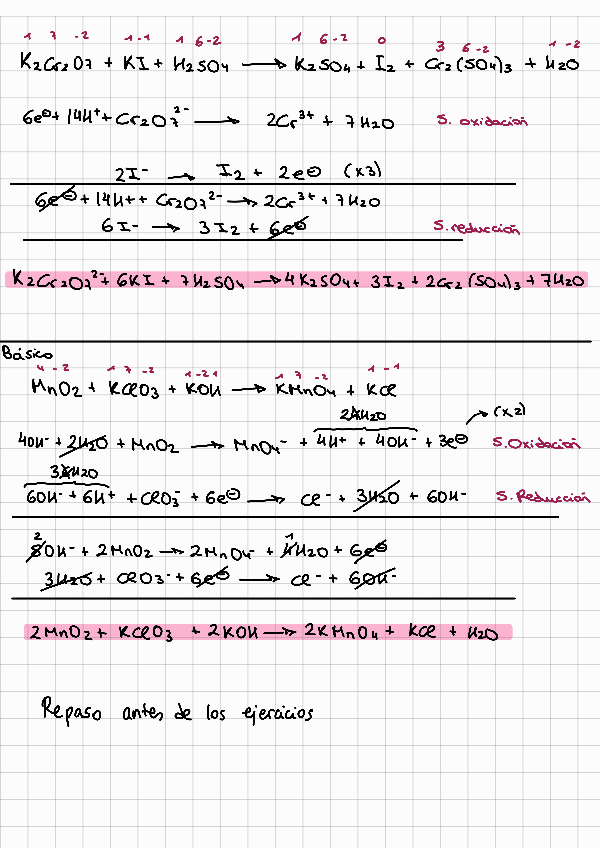 1 7 -2 1 -1 1 6 -2 1 6 -2 0 3 6 -2 1 -2
K2Cr2O7 + KI + H2SO4 → K2SO4 + I2 + Cr2(SO4)3 + H2O
6e⊖ + 14H+ + Cr2O7 2- → 2Cr3+ + 7H2O S. oxidación
2I- → I2 + 2e⊖ (x3)
6e⊖ + 14H+ + Cr2O7 2- → 2Cr3+ + 7H2O
6I- → 3I2 + 6e⊖ S. reducción
K2Cr2O7 2- + 6KI + 7H2SO4 → 4K2SO4 + 3I2 + 2Cr2(SO4)3 + 7H2O
Básico
4 -2 1 7 -2 1 -2 1 1 7 -2 1 -1
MnO2 + KClO3 + KOH → KMnO4 + KCl
2H2O (x2)
4OH- + 2H2O + MnO2 → MnO4- + 4H+ + 4OH- + 3e⊖ S. Oxidación
3H2O
6OH- + 6H+ + ClO3- + 6e⊖ → Cl- + 3H2O + 6OH- S. Reducción
2 1
8OH- + 2MnO2 → 2MnO4- + 4H2O + 6e⊖
3H2O + ClO3- + 6e⊖ → Cl- + 6OH-
2MnO2 + KClO3 + 2KOH → 2KMnO4 + KCl + H2O
Repaso antes de los ejercicios